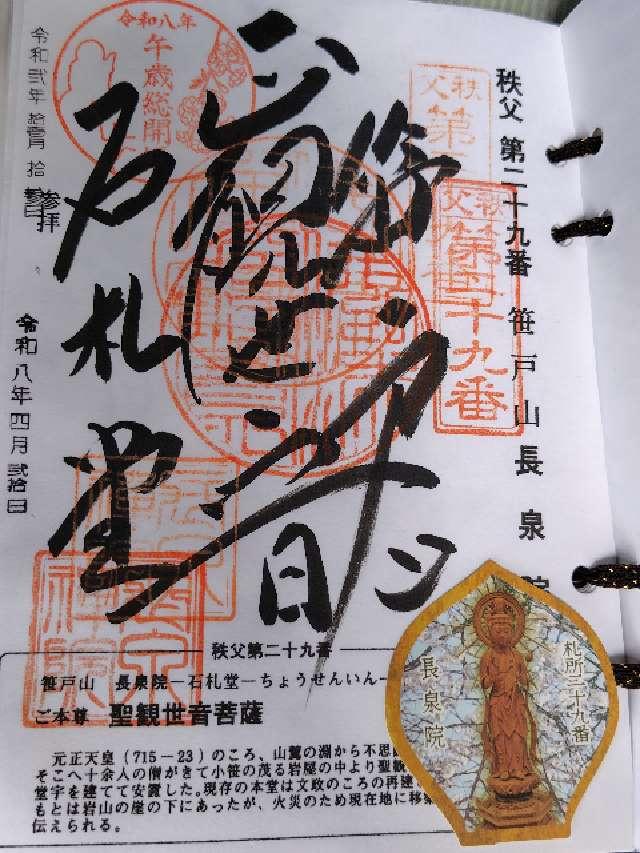 令和八年
午歳総開
秩父
第二十九番
秩父 第二十九番 笹戸山 長泉院
聖観世音
石札堂
令和弐年
参拝
令和八年四月弐拾日
秩父第二十九番
笹戸山 長泉院―石札堂―ちょうせんいん―
ご本尊 聖観世音菩薩
元正天皇(715-23)のころ、山麓の淵から不思
そこへ十余人の僧がきて小笹の茂る岩屋の中より聖観
堂宇を建てて安置した。現存の本堂は文政のころの再建
もとは岩山の崖の下にあったが、火災のため現在地に移築
伝えられる。
札所二十九番
長泉院